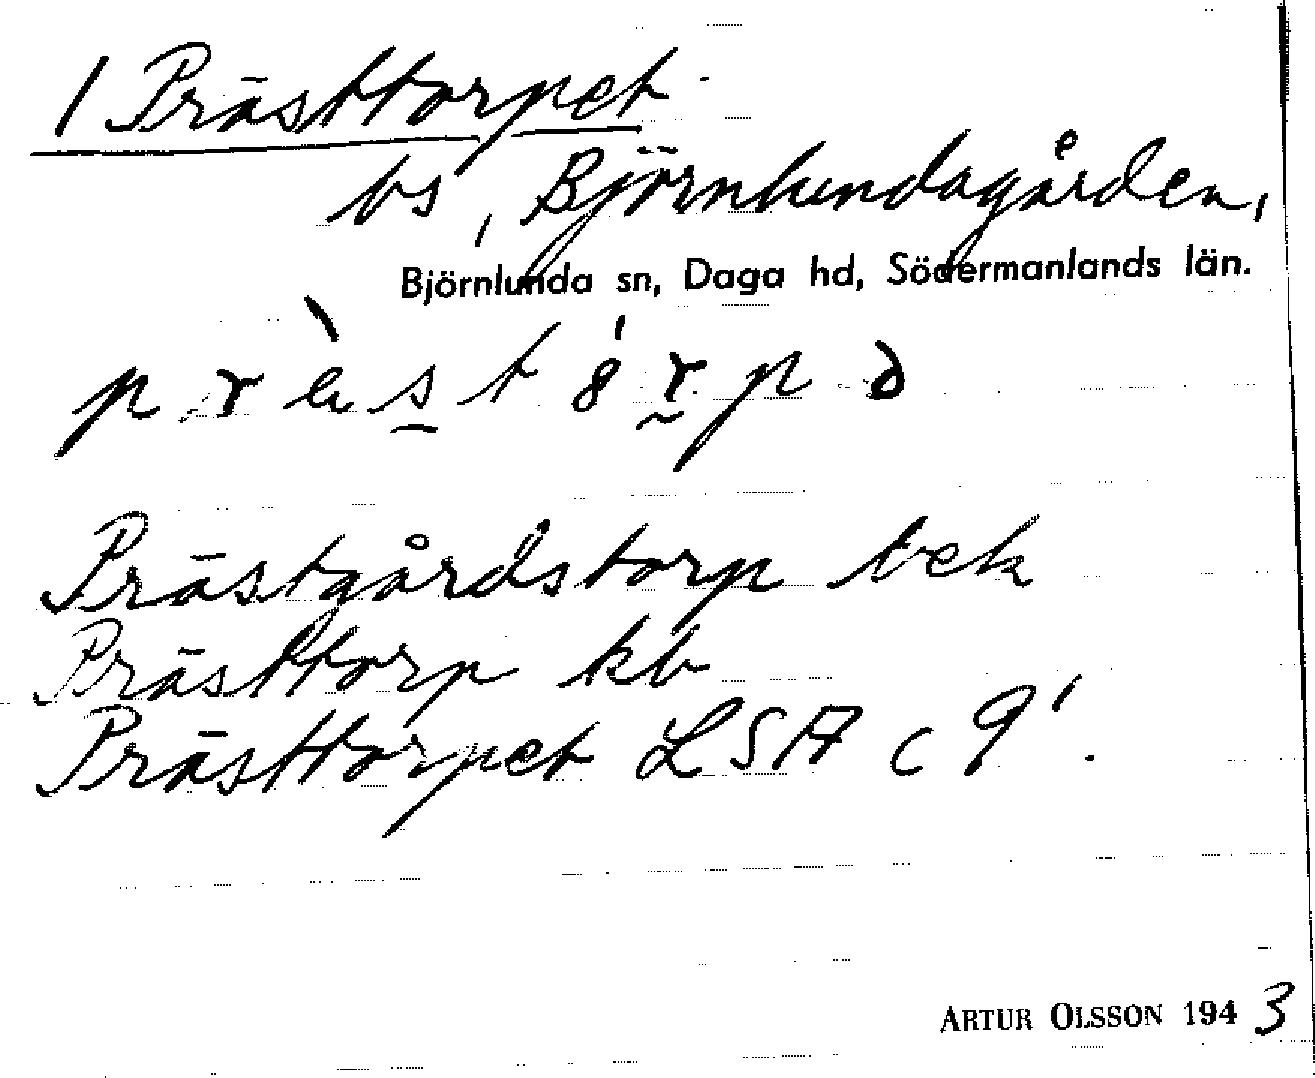 / Prästtorpet
bs, Björnlundagården,
Björnlunda sn, Daga hd, Södermanlands län.
Prästgårdstorp bek
Prästtorp kb
Prästtorpet LSA c 9'.
ARTUR OLSSON 1943